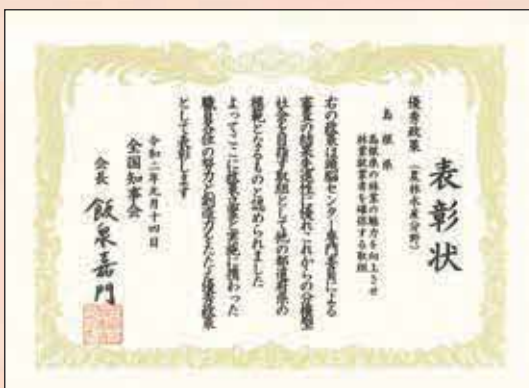 表彰状
優秀政策(農林水産分野)
島根県
島根県の林業の魅力を向上させ
林業就業者を確保する取組
右の政策は頭脳センター専門委員による
審査の結果先進性に優れこれからの分権型
社会を目指す取組として他の都道府県の
模範となるものと認められました
よってここに政策立案と実施に携わった
職員各位の努力と創造力をたたえ優秀政策
として表彰します
令和二年九月十四日
全国知事会
会長 飯泉嘉門